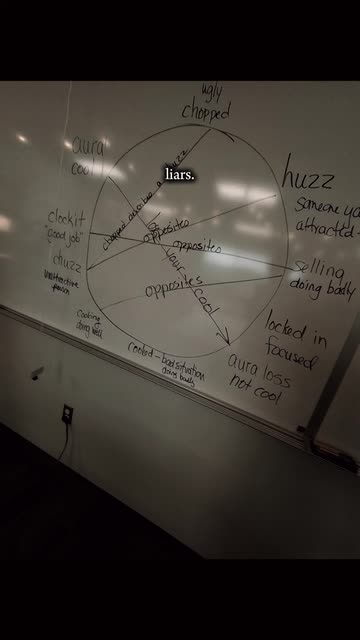 ugly
chopped
aura
cool
liars.
huzz
someone yo
attracted-
clockit
"good job"
opposites
opposites
selling
doing badly
chuzz
unattractive
person
opposites
your
cool
cooking
doing well
locked in
focused
cooked - bad situation
doing badly
aura loss
not cool